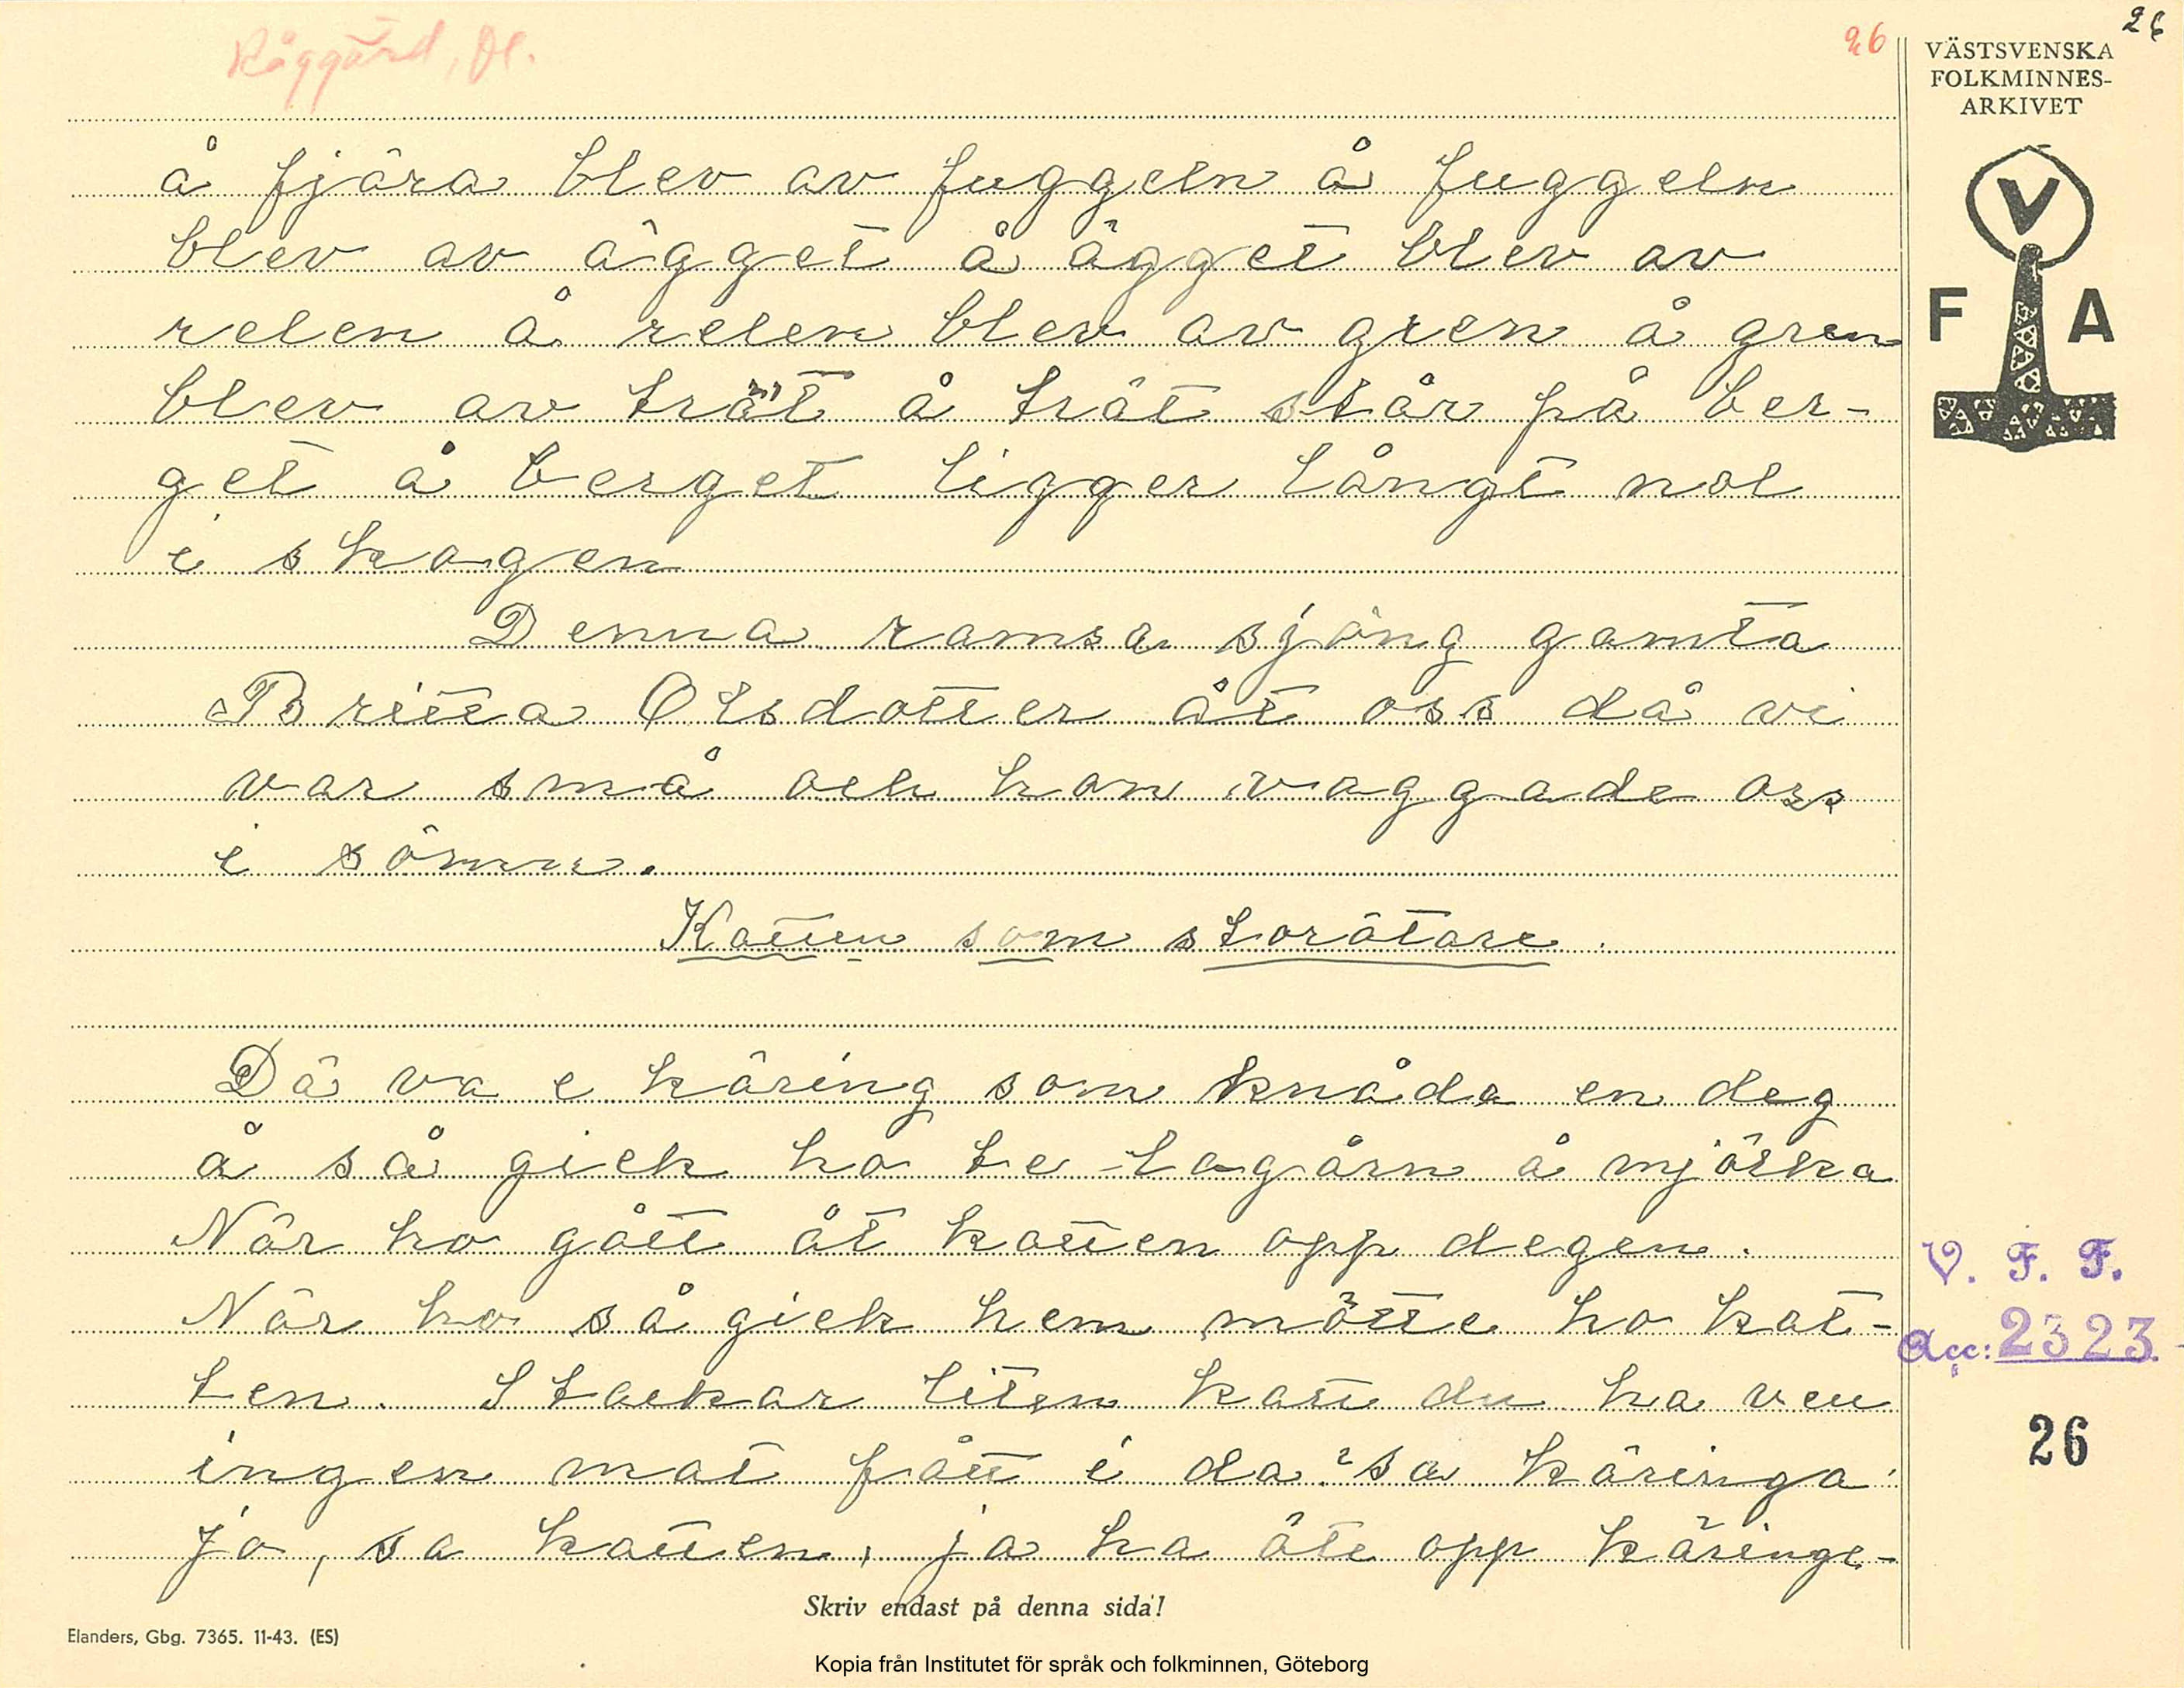 26
Råggärd, Dl.
26
VÄSTSVENSKA
FOLKMINNES-
ARKIVET
V
F A
å fjära blev av fuggeln å fuggeln
blev av ägget å ägget blev av
relen å relen blev av gren å gren
blev av trät å trät står på ber-
get å berget ligger långt nol
i skogen
Denna ramsa sjöng gamla
Britta Olsdotter åt oss då vi
var små och hon vaggade oss
i sömn.
Katten som storätare.
Dä va e käring som knåda en deg
å så gick ho te lagårn å mjölka
När ho gått åt katten opp degen.
När ho så gick hem mötte ho kat-
ten. Stackar liten katt du ha veu
ingen mat fått i da? sa käringa:
Jo, sa katten, ja ha äte opp käringe-
V. F. F.
Acc: 2323.
26
Skriv endast på denna sida!
Elanders, Gbg. 7365. 11-43. (ES)
Kopia från Institutet för språk och folkminnen, Göteborg